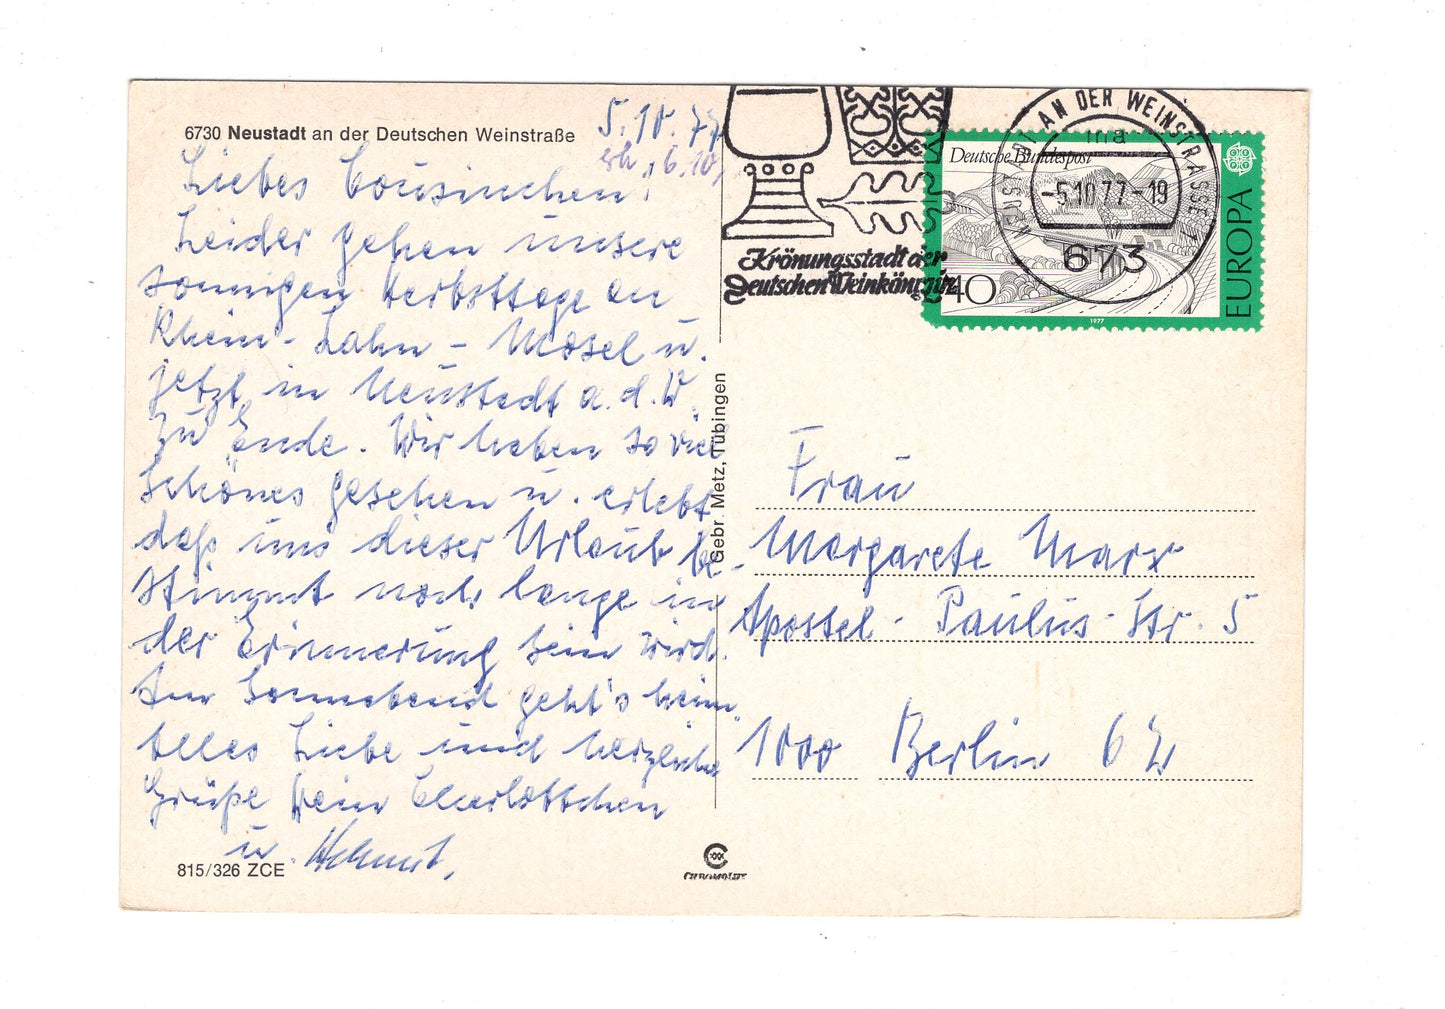 6730 Neustadt an der Deutschen Weinstraße
5.10.77
erh. 6.10.
Liebes Cousinchen!
Leider gehen unsere
sonnigen Herbsttage an
Rhein - Lahn - Mosel u.
jetzt in Neustadt a. d. W.
zu Ende. Wir haben so viel
Schönes gesehen u. erlebt
daß uns dieser Urlaub be-
stimmt noch lange in
der Erinnerung sein wird.
Am Sonnabend geht's heim.
Alles Liebe und herzliche
Grüße Dein Charlottchen
u. Helmut.
815/326 ZCE
Gebr. Metz, Tübingen
Krönungsstadt der
Deutschen Weinkönigin
NEUSTADT AN DER WEINSTRASSE 1
ma
-5.10.77-19
673
Deutsche Bundespost
40
EUROPA
1977
Frau
Margarete Marx
Apostel-Paulus-Str. 5
1000 Berlin 62